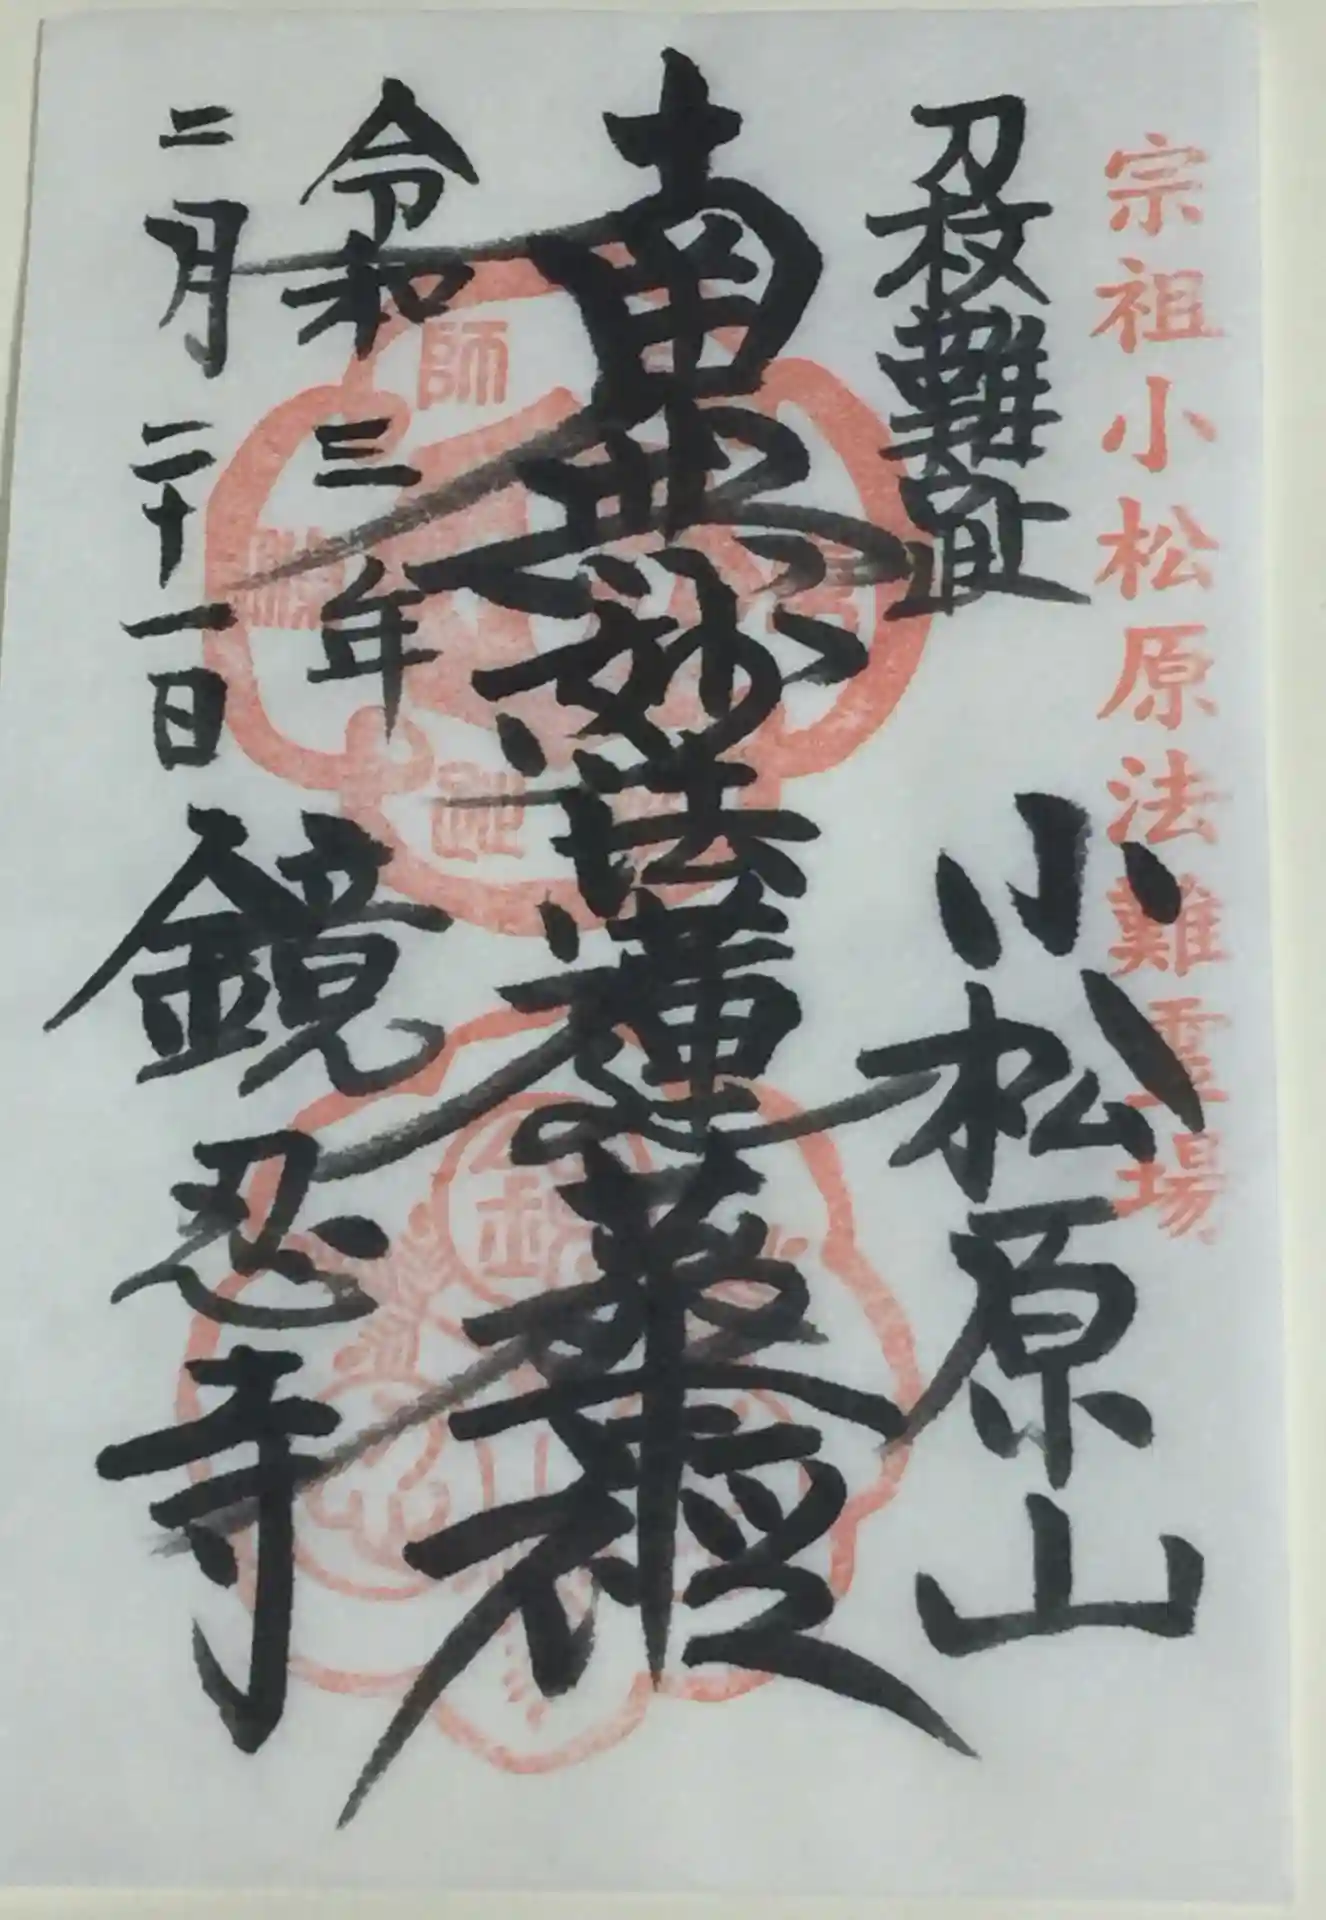 宗祖小松原法難霊場
刀杖難
小松原山
南無妙法蓮華経
令和三年
二月二十一日
鏡忍寺
師